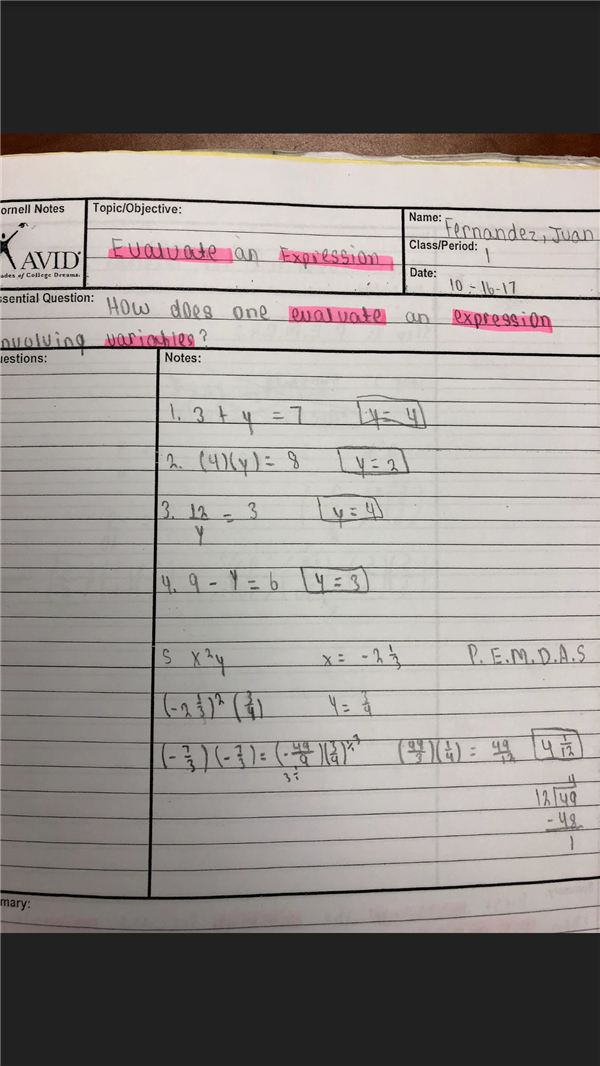 ornell Notes
AVID
ades of College Dreams.
Topic/Objective:
Evaluate an Expression
Name: Fernandez, Juan
Class/Period: 1
Date: 10-16-17
ssential Question: How does one evaluate an expression
nvolving variables?
estions:
Notes:
1. 3 + y = 7 y = 4
2. (4)(y) = 8 y = 2
3. 12/y = 3 y = 4
4. 9 - y = 6 y = 3
5 x²y x = -2 1/3 P.E.M.D.A.S
(-2 1/3)² (3/4) y = 3/4
(-7/3)(-7/3) = (-49/9)(3/4) ÷3 (49/3)(1/4) = 49/12 4 1/12
3 ÷
4
12 49
-48
1
mary: